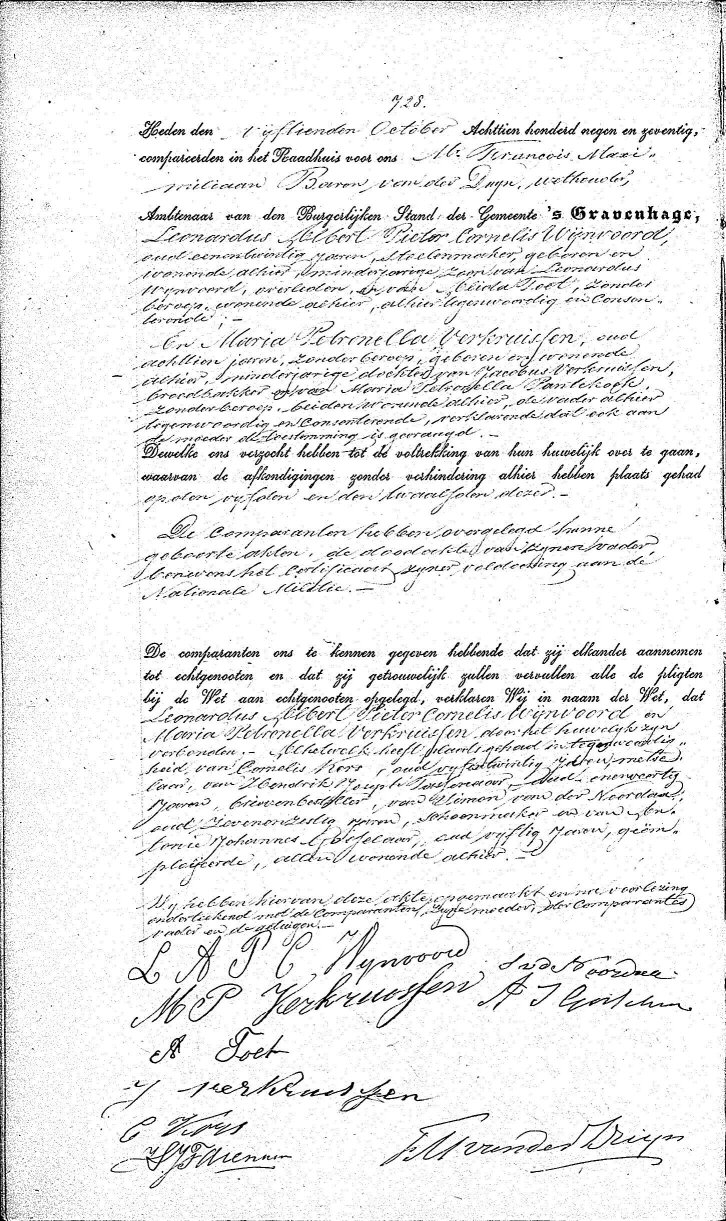 728.
Heden den vijftienden October Achttien honderd negen en zeventig,
compareerden in het Raadhuis voor ons Mr. François Maxi-
miliaan Baron van der Duyn, wethouder,
Ambtenaar van den Burgerlijken Stand der Gemeente 's Gravenhage,
Leonardus Albert Pieter Cornelis Wijnvoord,
oud eenentwintig jaren, stoelenmaker, geboren en
wonende alhier, minderjarige zoon van Leonardus
Wijnvoord, overleden, en van Alida Toet, zonder
beroep, wonende alhier, alhier tegenwoordig en Consen-
terende; -
En Maria Petronella Verkruissen, oud
achttien jaren, zonder beroep, geboren en wonende
alhier, minderjarige dochter van Jacobus Verkruissen,
broodbakker en van Maria Petronella Pannekoek,
zonder beroep, beiden wonende alhier, de vader alhier
tegenwoordig en Consenterende, verklarende dat ook aan
de moeder de toestemming is gevraagd. -
Dewelke ons verzocht hebben tot de voltrekking van hun huwelijk over te gaan,
waarvan de afkondigingen zonder verhindering alhier hebben plaats gehad
op den vijfden en den twaalfden dezer. -
De Comparanten hebben overgelegd hunne
geboorte akten, de doodakte van zynen vader,
benevens het Certificaat zyner voldoening aan de
Nationale Militie. -
De comparanten ons te kennen gegeven hebbende dat zij elkander aannemen
tot echtgenooten en dat zij getrouwelijk zullen vervullen alle de pligten
bij de Wet aan echtgenooten opgelegd, verklaren Wij in naam der Wet, dat
Leonardus Albert Pieter Cornelis Wijnvoord en
Maria Petronella Verkruissen, door het huwelyk zyn
verbonden. - Al hetwelk heeft plaats gehad in tegenwoordig-
heid van Cornelis Kors, oud vyfentwintig jaren, metse-
laar, van Hendrik Joseph oud eenenveertig
Jaren, brievenbesteller, van Simon van der Noordaa,
oud zevenenzestig jaren, schoenmaker en van An-
tonie Johannes oud vyftig jaren, geëm-
ployeerde, allen wonende alhier. -
Wy hebben hiervan deze akte opgemaakt en na voorlezing
onderteekend met de Comparanten, zyne moeder, der Comparantes
vader en de getuigen. -
L A P C Wynvoord
S vd Noordaa
M P Verkruossen
A J
A Toet
J verkruissen
C Kors
H J
F M van der Duyn